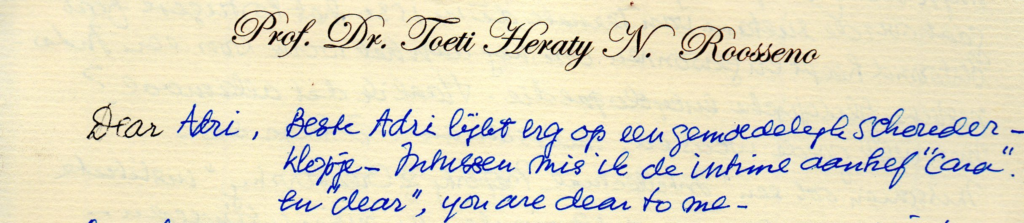 Prof. Dr. Toeti Heraty N. Roosseno
Dear Adri, Beste Adri lijkt erg op een gemoedelijk schouder-
klopje - Intussen mis ik de intieme aanhef "Cara".
En "dear", you are dear to me -